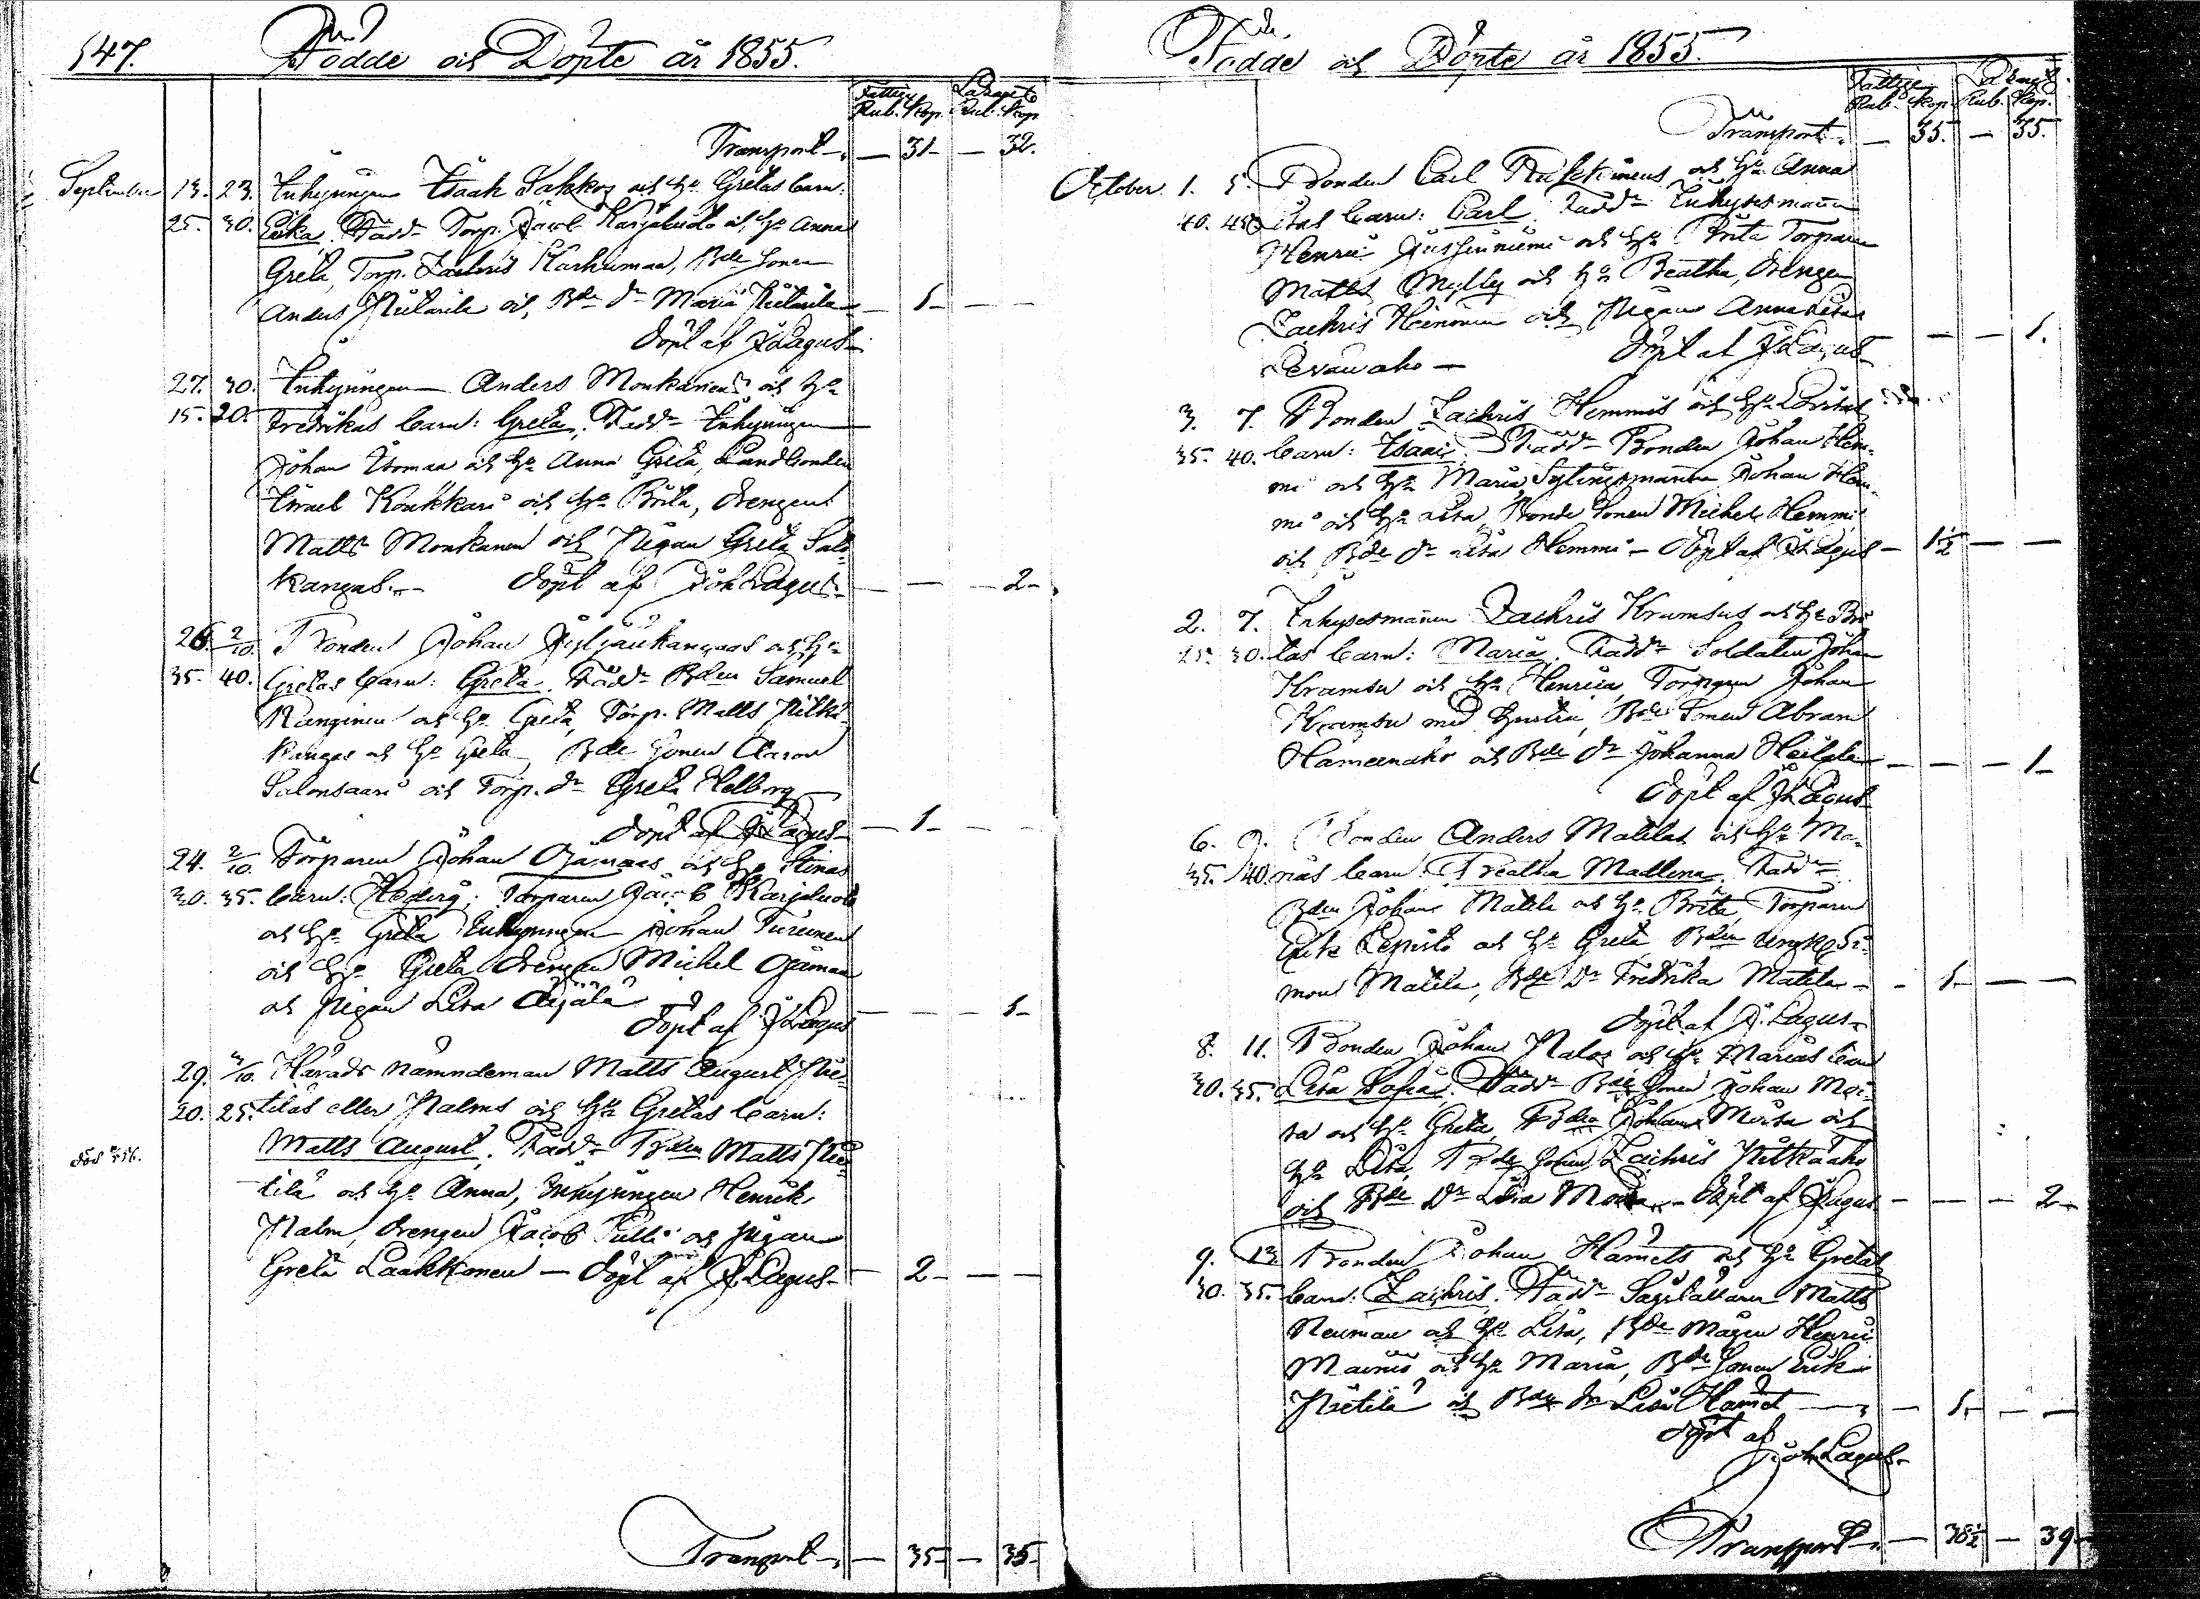 147. Födde och Döpte år 1855.
Fattige Lazarett
Rub. Kop. Rub. Kop
Transport — 31 — 32.
September 13. 23. Inhysingen Isaak Sakkos och H:u Gretas barn:
25. 30. Fadd:r Torp. Jacob Karjaluoto och H:u Anna
Greta, Torp. Zachris Karhumaa, Bde Sonen
Anders och Bde Dr Maria — 1 — —
Döpt af J Lagus
27. 30. Inhysingen Anders Monkanens och H:u
15. 20. Fredrikas barn: Greta. Fadd:r Inhysingen
Johan Isomaa och H:u Anna Greta, Landbonden
Israel Konkkari och H:u Brita, Drengen
Matts Monkanen och Pigan Greta Salo
kangas. Döpt af Joh Lagus — — — 2
26. 2/10. Bonden Johan och H:u
35. 40. Gretas barn: Greta. Fadd:r Bden Samuel
Kanginen och H:u Greta, Torp. Matts Pitkä
kangas och H:u Greta, Bde Sonen Aaron
Salonsaari och Torp. Dr Greta Helborg
Döpt af J Lagus — 1 — —
24. 2/10. Torparen Johan Ojamaas och H:u Stinas
30. 35. barn: Hedvig; Torparen Jacob Karjaluoto
och H:u Greta Inhysingen Johan Turunen
och H:u Greta Drengen Michel Ojamaa
och Pigan Lisa Äijälä
Döpt af J Lagus — — — 1
29. 4/10. Härads Nämndeman Matts August Pie-
20. 25. tiläs eller Palms och H:u Gretas barn:
död Matts August. Fadd:r Bden Matts Pie
tilä och H:u Anna, Inhysingen Henrik
Palm, Drengen Jacob Pulli och Pigan
Greta Laakkonen — Döpt af J Lagus — 2 — —
Transport — 35 — 35
Födde och Döpte år 1855.
Fattige Lazarett
Rub. Kop. Rub. Kop.
Transport — 35. — 35.
October 1. 5. Bonden Carl och H:u Anna
40. 45. Lisas barn: Carl. Fadd:r Inhysesmann
Henric Jussinniemi och H:u Brita Torparen
Matts Mylly och H:u Beatha, Drengen
Zachris Heinonen och Pigan Anna Lisa
— Döpt af J Lagus — — — 1.
3. 7. Bonden Zachris Hemmis och H:u Lovisas
35. 40. barn: Isaac. Fadd:r Bonden Johan Hem-
mi och H:u Maria, Sytingsmannen Johan Hem-
mi och H:u Lisa, Bonde Sonen Michel Hemmi
och Bde Dr Lisa Hemmi — Döpt af J Lagus — 1½ — —
2. 7. Inhysesmannen Zachris Kramsus och H:u Bri
25. 30. tas barn: Maria. Fadd:r Soldaten Johan
Kramsu och H:u Henrica, Torparen Johan
Kramsu med hustru, Bde Sonen Abram
Hameenaho och Bde Dr Johanna Heikkila — — — 1
Döpt af J Lagus
6. 9. Bonden Anders Matilas och H:u Ma-
35. 40. rias barn Beatha Madlena. Fadd:r
Bden Johan Matila och H:u Brita, Torparen
Erik Lepistö och H:u Greta Bden ungk. Si-
mon Matila, Bde Dr Fredrika Matila — 1 — —
Döpt af J. Lagus
8. 11. Bonden Johan Palos och H:u Marias barn
30. 35. Lisa Sofia. Fadd:r Bde Sonen Johan Moi-
sa och H:u Greta, Bden Johan Moisa och
H:u Lisa, Bde Sonen Zachris Pitkäaho
och Bde Dr Lisa Moisa — Döpt af J Lagus — — — 2
9. 13. Bonden Johan Hamets och H:u Gretas
30. 35. barn: Zachris. Fadd:r Sagställaren Matts
Neuman och H:u Lisa, Bde Mågen Henric
och H:u Maria, Bde Sonen Erik
Pietilä och Bde Dr Lisa Hamet — 1 — —
Döpt af
Joh Lagus
Transport — 38½ — 39